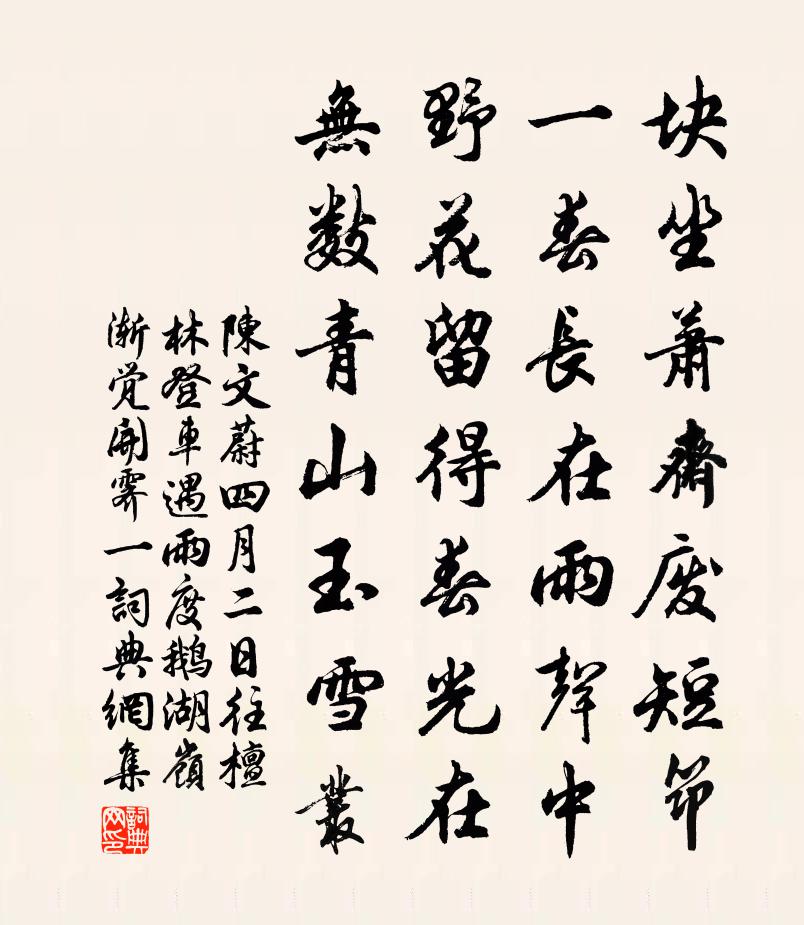 块坐蕭齋废短筇
一春長在雨聲中
野花留得春光在
無数青山玉雪叢
陳文蔚四月二日往檀
林登車遇雨度鹅湖嶺
渐觉開霁一詞典網集
詞典网印